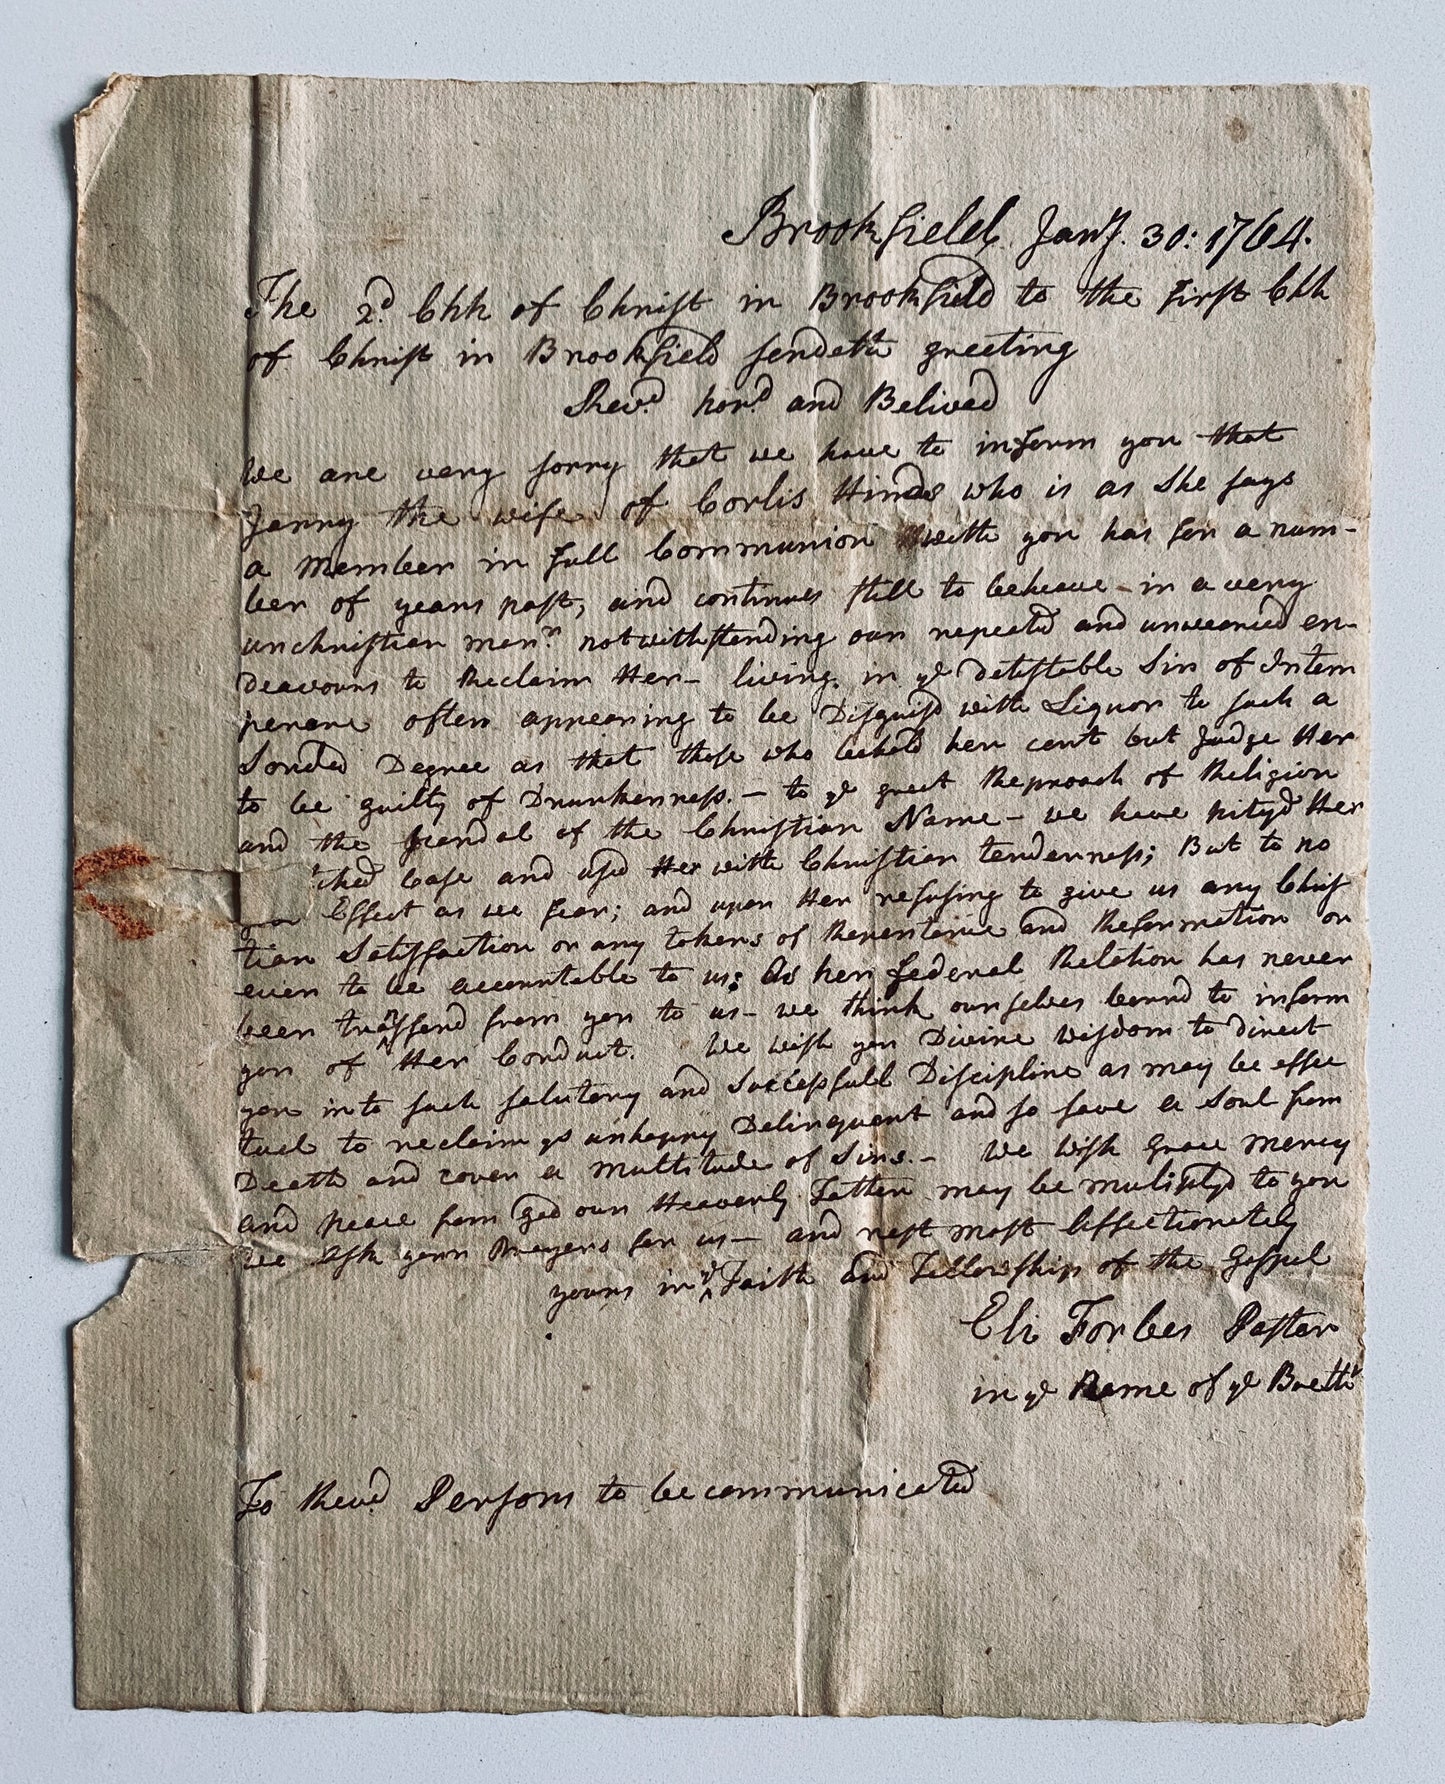 Brookfield Jany. 30: 1764.
The 2d. Chh of Christ in Brookfield to the first Chh
of Christ in Brookfield sendeth greeting
Revd. hond. and Belived
We are very sorry that we have to inform you that
Jenny the wife of Corlis Hinds who is as She says
a Member in full Communion with you has for a num-
ber of years past, and continues still to behave in a very
unchristian mannr. notwithstanding our repeated and unwearied en-
deavours to Reclaim Her – living in ye detestable Sin of Intem
perance often appearing to be Disguisd with Liquor to such a
Degree as that those who beheld her cant but Judge Her
to be guilty of Drunkenness. – to ye great Reproach of Religion
and the scandal of the Christian Name – we have pityd Her
Case and usd Her with Christian tenderness; But to no
Effect as we fear; and upon Her refusing to give us any Chris
tian Satisfaction or any tokens of Repentance and Reformation or
even to be accountable to us: As her federal Relation has never
been transferd from you to us – we think ourselves bound to inform
you of Her Conduct. We wish you Divine wisdom to direct
you into such salutary and Successfull Discipline as may be effec
tual to reclaim ys unhappy Delinquent and so save a Soul from
Death and cover a multitude of Sins. – We wish grace mercy
and peace from god our Heavenly Father may be multiplyd to you
we Ask your Prayers for us – and rest most affectionately
yours in ye Faith and Fellowship of the Gospel
Eli Forbes Paster
in ye Name of ye Breth
To Revd Persons to be communicated